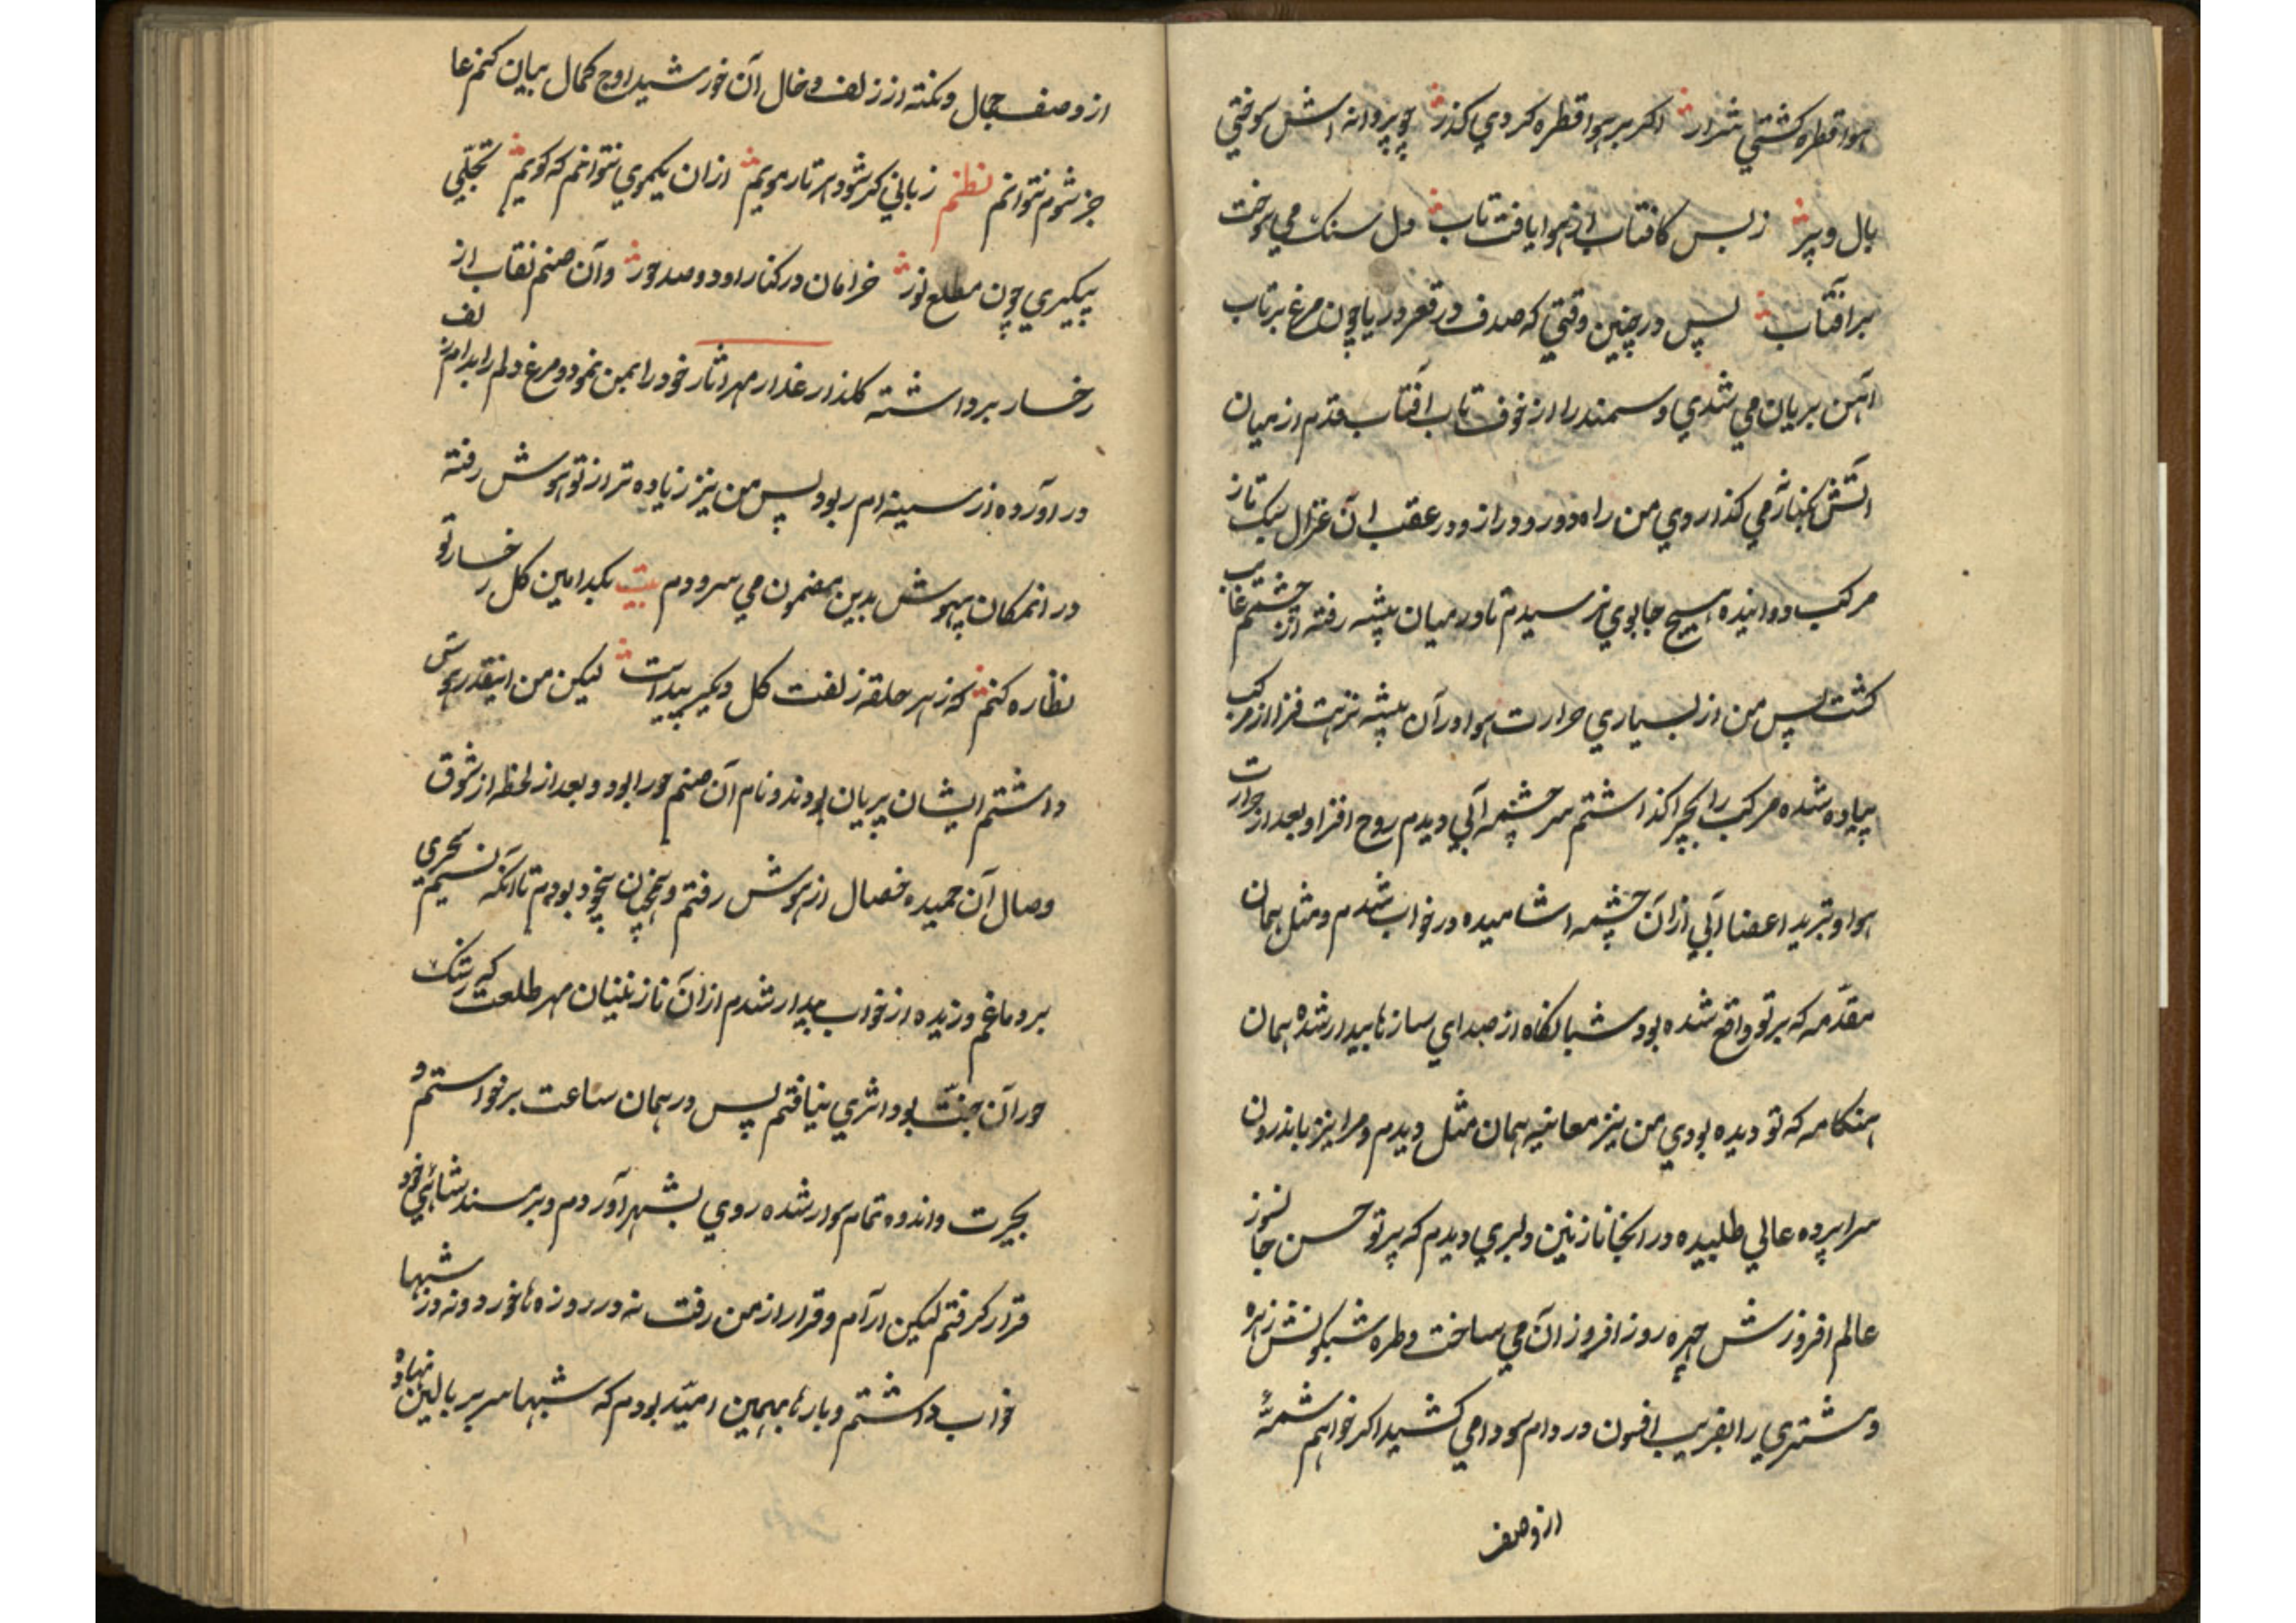 هوا قطره کشتی شرار اکر بر هوا قطره کردی کذر چو پروانه اتش سوختی
بال و پر ز بس کافتاب از هوا یافت تاب دل سنک می سوخت
بر آفتاب پس در چنین وقتی که صدف در قعر دریا چون مرغ بر تاب
آهن بریان می شدی و سمندر از خوف تاب آفتاب قدم از میان
آتش بکنار می کذاردی من راه دور و دراز و در عقب آن غزال سبک تاز
مرکب دوانیده هیچ جا بوی نرسیدم تا در میان بیشه رفته از چشم غایب
کشت پس من از بسیاری حرارت هوا در آن بیشه نزهت فزا از مرکب
پیاده شده مرکب را بچرا کذاشتم سر چشمه آبی دیدم روح افزا و بعد از حرارت
هوا و تبرید اعضا آبی از آن چشمه اشامیده در خواب شدم و مثل همان
مقدّمه که بر تو واقع شده بود شبانکاه از صدای سازها بیدار شده همان
هنکامه که تو دیده بودی من نیز معاینه همان مثل دیدم و مرا نیز باندرون
سراپرده عالی طلبیده در انجا نازنین دلبری دیدم که پرتو حسن جانسوز
عالم افروزش چهره روز افروز آن می ساخت و طره شبکونش زهره
و مشتری را بفریب افسون در دام سودا می کشید اکر خواهم شمهٔ
از وصف
از وصف جمال و نکته از زلف و خال آن خورشید اوج کمال بیان کنم عا
جز شوم نتوانم نظم زبانی کر شود هر تار مویم از ان یکموی نتوانم که کویم تجلّی
پیکری چون مطلع نور خرامان در کنار او دو صد حور و آن صنم نقاب از
رخسار برداشته کلذار عذار مهر اثار خود را بمن نمود و مرغ دلم را بدام زلف
در اورده از سینه ام ربود پس من نیز زیاده تر از تو هوش رفته
در انمکان بیهوش بدین مضمون می سرودم بیت بکدامین کل رخسار تو
نظاره کنم که ز هر حلقه زلفت کل دیکر پیداست لیکن من اینقدر هوش
داشتم ایشان پریان بودند و نام آن صنم حورا بود و بعد از لحظه از شوق
وصال آن حمیده خصال از هوش رفتم و همچنان بیخود بودم تا آنکه نسیم سحری
بر دماغم وزیده از خواب بیدار شدم از آن نازنینان مهر طلعت که رشک
حور آن جنّت بود اثری نیافتم پس در همان ساعت برخواستم و
بحیرت و اندوه تمام سوار شده روی بشهر آوردم و بر مسند شاهی خود
قرار کرفتم لیکن ارام و قرار از من رفت نه در روزه ها خورد و نه در شبها
خواب داشتم و بارها بهمین امیّد بودم که شبها سر بر بالین نهاده